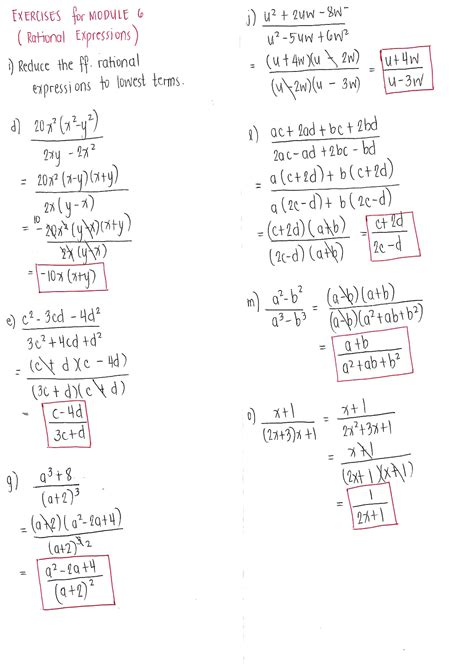 EXERCISES for MODULE 6
(Rational Expressions)
i) Reduce the ff. rational
expressions to lowest terms.
d) 20x²(x²-y²) / 2xy - 2x²
= 20x²(x-y)(x+y) / 2x(y-x)
= 10 -20x²(y-x)(x+y) / 2x(y-x)
= -10x(x+y)
e) c² - 3cd - 4d² / 3c² + 4cd + d²
= (c + d)(c - 4d) / (3c + d)(c + d)
= c - 4d / 3c + d
g) a³ + 8 / (a+2)³
= (a+2)(a² - 2a + 4) / (a+2)³ 2
= a² - 2a + 4 / (a+2)²
j) u² + 2uw - 8w² / u² - 5uw + 6w²
= (u + 4w)(u - 2w) / (u - 2w)(u - 3w) = u + 4w / u - 3w
l) ac + 2ad + bc + 2bd / 2ac - ad + 2bc - bd
= a(c + 2d) + b(c + 2d) / a(2c - d) + b(2c - d)
= (c + 2d)(a + b) / (2c - d)(a + b) = c + 2d / 2c - d
m) a² - b² / a³ - b³ = (a - b)(a + b) / (a - b)(a² + ab + b²)
= a + b / a² + ab + b²
o) x + 1 / (2x+3)x + 1 = x + 1 / 2x² + 3x + 1
= x + 1 / (2x + 1)(x + 1)
= 1 / 2x + 1